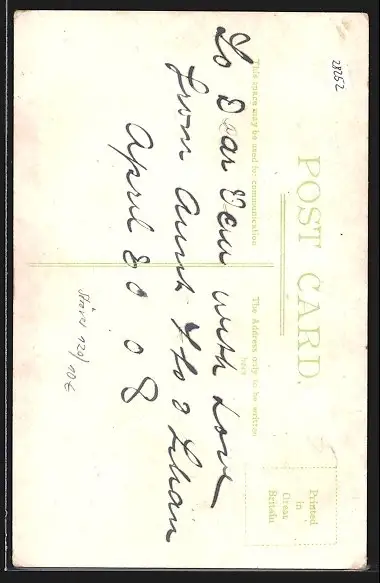 28252
POST CARD.
This space may be used for communication
The Address only to be written here
Printed
in
Great
Britain
To Dear Dear with Love
from Aunt Flo & Lilian
April 8 08
120/10€